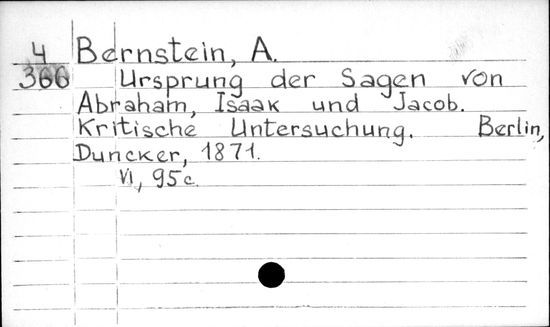 4 Bernstein, A.
366 Ursprung der Sagen von
Abraham, Isaak und Jacob.
Kritische Untersuchung. Berlin,
Duncker, 1871.
VI, 95 c.